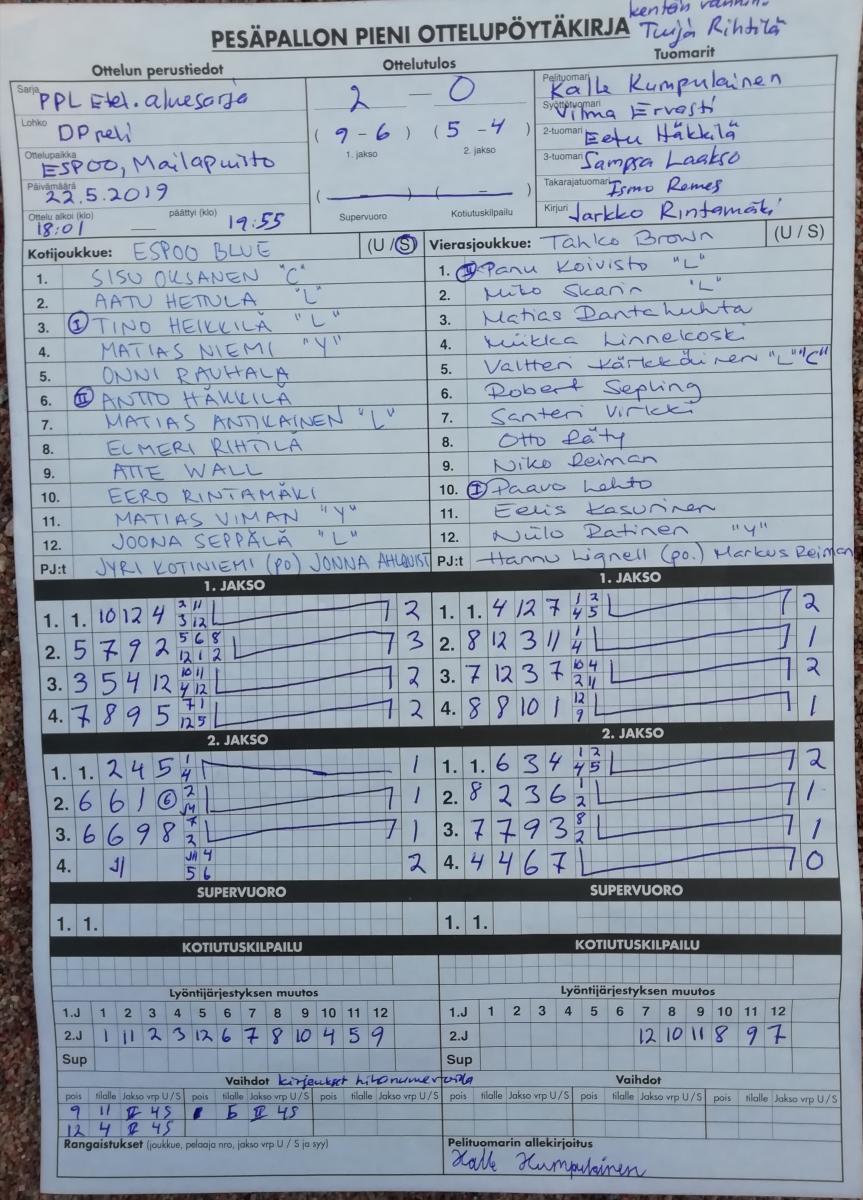 PESÄPALLON PIENI OTTELUPÖYTÄKIRJA
Tuija Rihtilä
Ottelun perustiedot
Sarja PPL Etel. aluesarja
Lohko
Ottelupaikka ESPOO, Mailapuisto
Päivämäärä 22.5.2019
Ottelu alkoi (klo) 18:01 — päättyi (klo) 19:55
Ottelutulos
2 — 0
( 9 - 6 ) ( 5 - 4 )
1. jakso 2. jakso
Supervuoro Kotiutuskilpailu
Tuomarit
Pelituomari Kalle Kumpulainen
Syöttötuomari Vilma Ervasti
2-tuomari Eetu Häkkilä
3-tuomari Sampsa Laakso
Takarajatuomari Ismo Remes
Kirjuri Jarkko Rintamäki
Kotijoukkue: ESPOO BLUE (U / S)
1. SISU OKSANEN "C"
2. AATU HETULA "L"
3. I TINO HEIKKILÄ "L"
4. MATIAS NIEMI "Y"
5. ONNI RAUHALA
6. II ANTTO HÄKKILÄ
7. MATIAS ANTIKAINEN "L"
8. ELMERI RIHTILÄ
9. ATTE WALL
10. EERO RINTAMÄKI
11. MATIAS VIMAN "Y"
12. JOONA SEPPÄLÄ "L"
PJ:t JYRI KOTINIEMI (po) JONNA AHLQVIST
Vierasjoukkue: Tahko Brown (U / S)
1. II Panu Koivisto "L"
2. Miko Skarin "L"
3. Matias Dantaluhta
4. Miikka Linnekoski
5. Valtteri Kärkkäinen "L" "C"
6. Robert Sepling
7. Santeri Virkki
8. Otto Räty
9. Niko Reiman
10. I Paavo Lehto
11. Eelis Kasurinen
12. Niilo Ratinen "Y"
PJ:t Hannu Lignell (po.) Markus Reiman
1. JAKSO
1. 1. 10 12 4 2 11 3 12 2
2. 5 7 9 2 5 6 8 12 1 2 3
3. 3 5 4 12 10 11 4 12 2
4. 7 8 9 5 7 1 12 5 2
1. JAKSO
1. 1. 4 12 7 1 2 4 5 2
2. 8 12 3 11 1 4 1
3. 7 12 3 7 10 4 2 11 2
4. 8 8 10 1 12 9 1
2. JAKSO
1. 1. 2 4 5 1 4 1
2. 6 6 1 6 2 1
3. 6 6 9 8 7 2 1
4. 4 5 6 2
2. JAKSO
1. 1. 6 3 4 1 2 4 5 2
2. 8 2 3 6 1 2 1
3. 7 7 9 3 8 2 1
4. 4 4 6 7 0
SUPERVUORO
1. 1.
SUPERVUORO
1. 1.
KOTIUTUSKILPAILU
KOTIUTUSKILPAILU
Lyöntijärjestyksen muutos
1.J 1 2 3 4 5 6 7 8 9 10 11 12
2.J 1 11 2 3 12 6 7 8 10 4 5 9
Sup
Lyöntijärjestyksen muutos
1.J 1 2 3 4 5 6 7 8 9 10 11 12
2.J 12 10 11 8 9 7
Sup
Vaihdot
pois tilalle Jakso vrp U / S pois tilalle Jakso vrp U / S pois tilalle Jakso vrp U / S
9 11 II 4S 5 II 4S
12 4 II 4S
Vaihdot
pois tilalle Jakso vrp U / S pois tilalle Jakso vrp U / S pois tilalle Jakso vrp U / S
Rangaistukset (joukkue, pelaaja nro, jakso vrp U / S ja syy)
Pelituomarin allekirjoitus
Kalle Kumpulainen